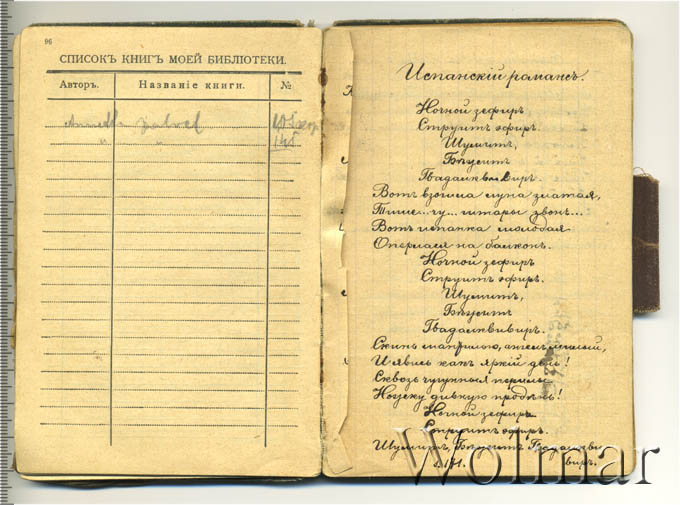 96
СПИСОКЪ КНИГЪ МОЕЙ БИБЛІОТЕКИ.
Авторъ. Названіе книги. №
Испанскій романсъ.
Ночной зефиръ
Струитъ эфиръ.
Шумитъ,
Бѣжитъ
Гвадалквивиръ.
Вотъ взошла луна златая,
Тише... чу... гитары звонъ...
Вотъ испанка молодая
Оперлася на балконъ.
Ночной зефиръ
Струитъ эфиръ.
Шумитъ,
Бѣжитъ
Гвадалквивиръ.
Скинь мантилью, ангелъ милый,
И явись какъ яркій день!
Сквозь чугунныя перилы
Ножку дивную продѣнь!
Ночной зефиръ
Струитъ эфиръ.
Шумитъ, Бѣжитъ Гвадалкви
виръ.
Wolmar